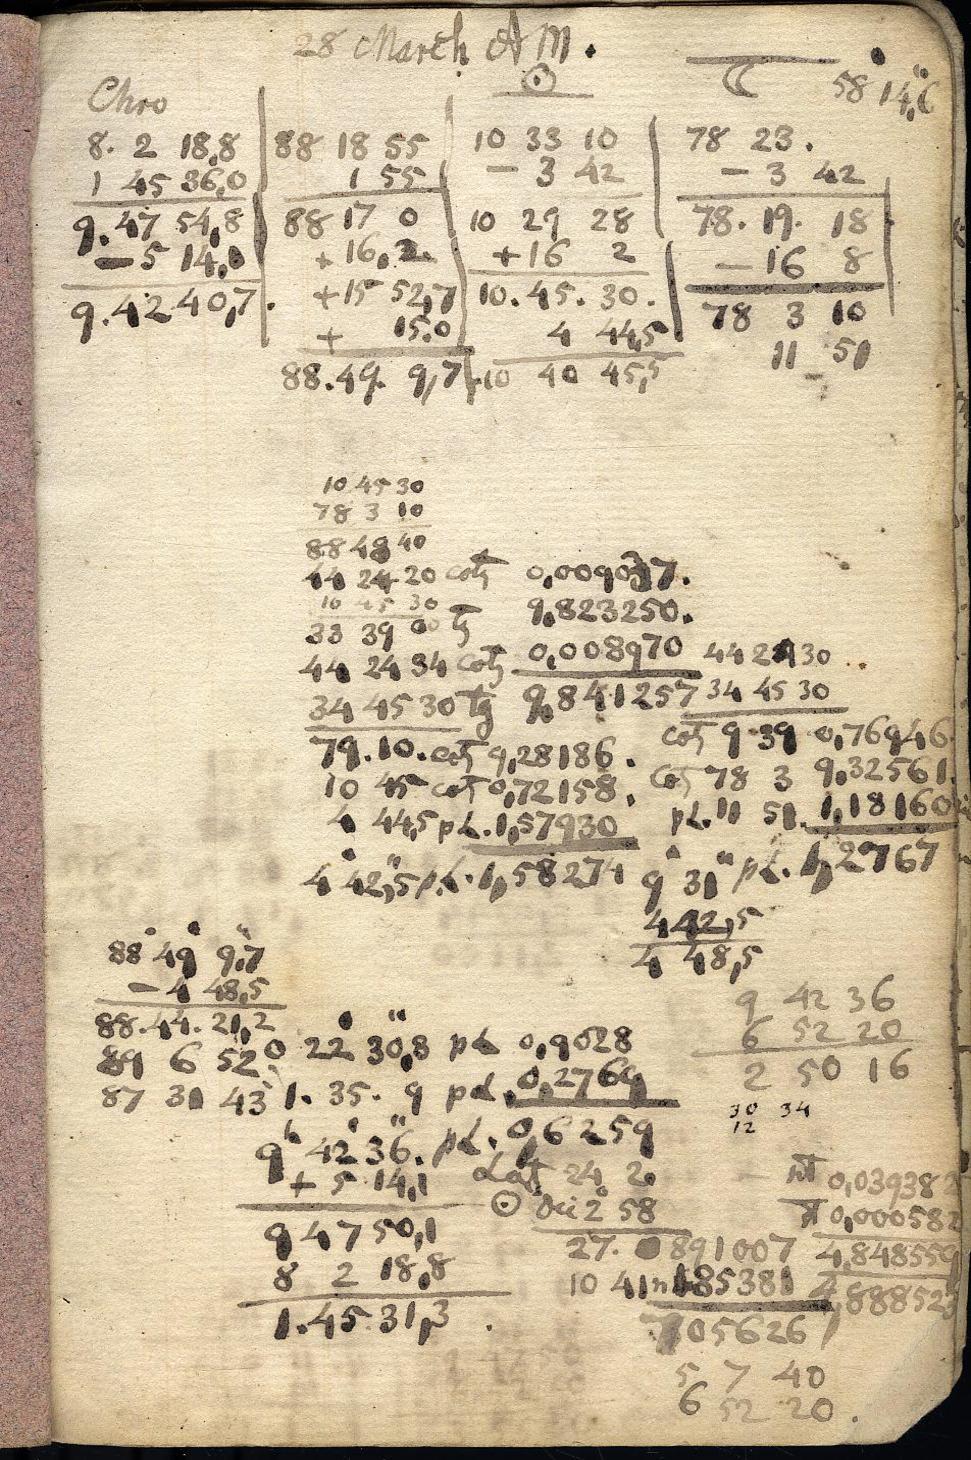 28 March AM.
Chro ☉ ☾ 58 14,6
8. 2 18,8 88 18 55 10 33 10 78 23.
1 45 36,0 1 55 − 3 42 − 3 42
9.47 54,8 88 17 0 10 29 28 78.19. 18
− 5 14, + 16,2 + 16 2 − 16 8
9.42 40,7 + 15 52,7 10.45.30. 78 3 10
+ 15.0 4 44,5 11 51
88.49. 9,7 10 40 45,5
10 45 30
78 3 10
88 48 40
44 24 20 0,0090 7.
10 45 30 9,823250.
33 39 00 tg
44 24 34 0,008970 44 2 30
34 45 30 tg 9,841257 34 45 30
79.10. 9,28186. 9 39 0,76946
10 45 0,72158. 78 3 9,32561
4 44,5 pl. 1,57930 pl. 11 51. 1,18160
4' 42",5 pl. 1,58274 9' 31" pl. 1,2767
4 42,5
4 48,5
88° 49' 9",7
− 4 48,5 9 42 36
88.44.21,2 6 52 20
89 6 52 0 22' 30",8 pl 0,9028 2 50 16
87 31 43 1. 35. 9 pl. 0,2769 30 34
12
9h 42' 36". pl. 0,6259
+ 5 14,1 Lat 24 2. 0,039382
9 47 50,1 ☉ Dec 2 58 0,000582
8 2 18,8 27. 891007 4,848559
1.45.31,3 10 41 185381 4,888523
705626
5 7 40
6 52 20.